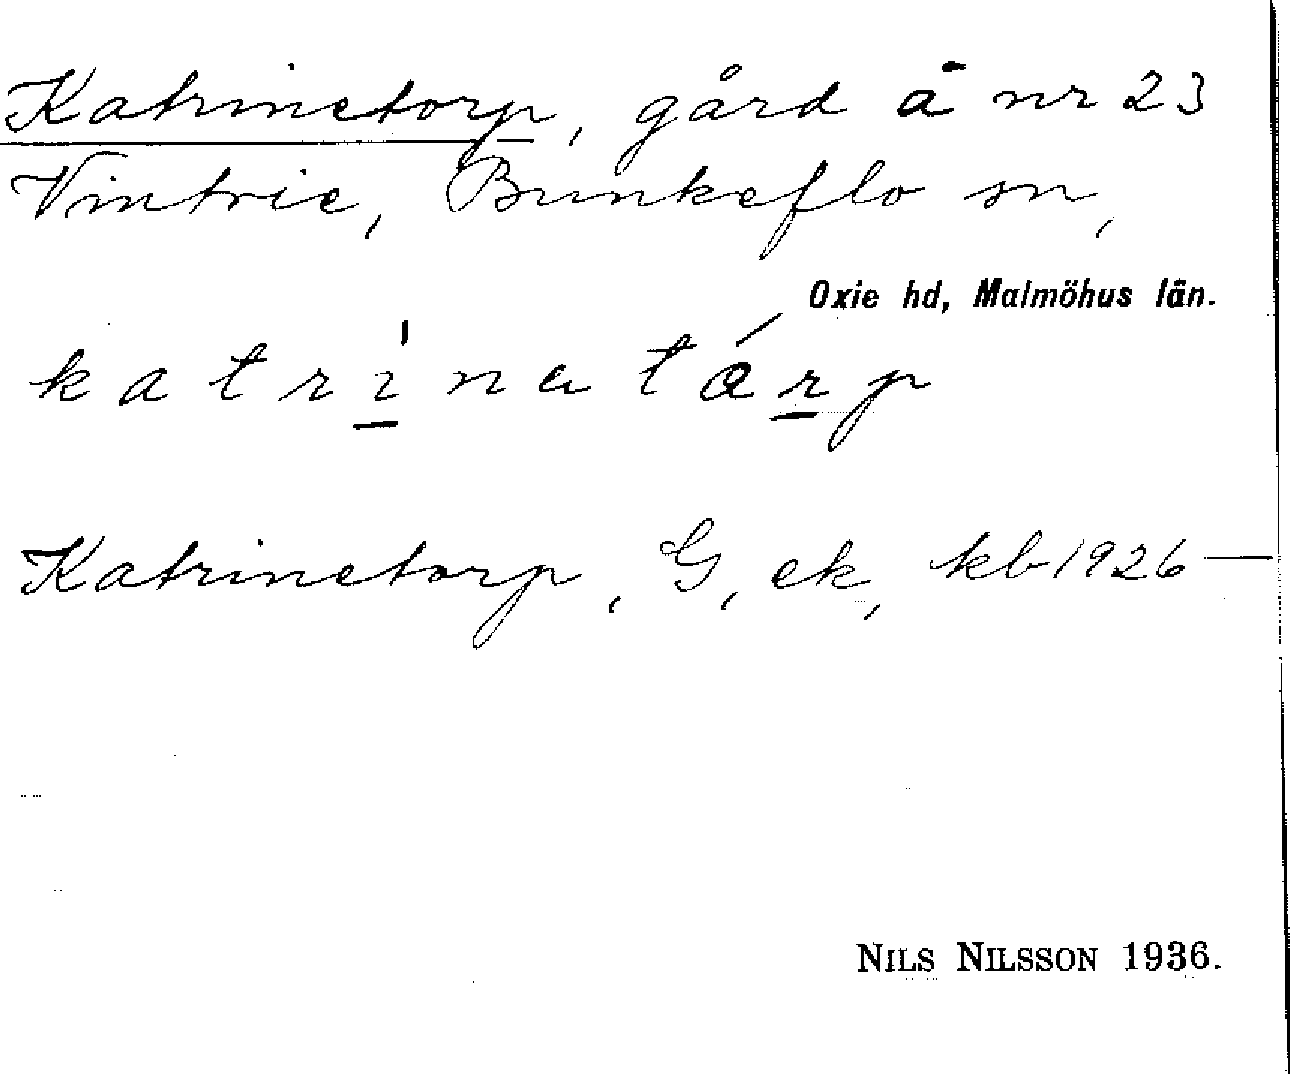 Katrinetorp, gård å nr 23
Vintrie, Bunkeflo sn,
Oxie hd, Malmöhus län.
katrìnatárp
Katrinetorp, G, ek, kb 1926—
NILS NILSSON 1936.